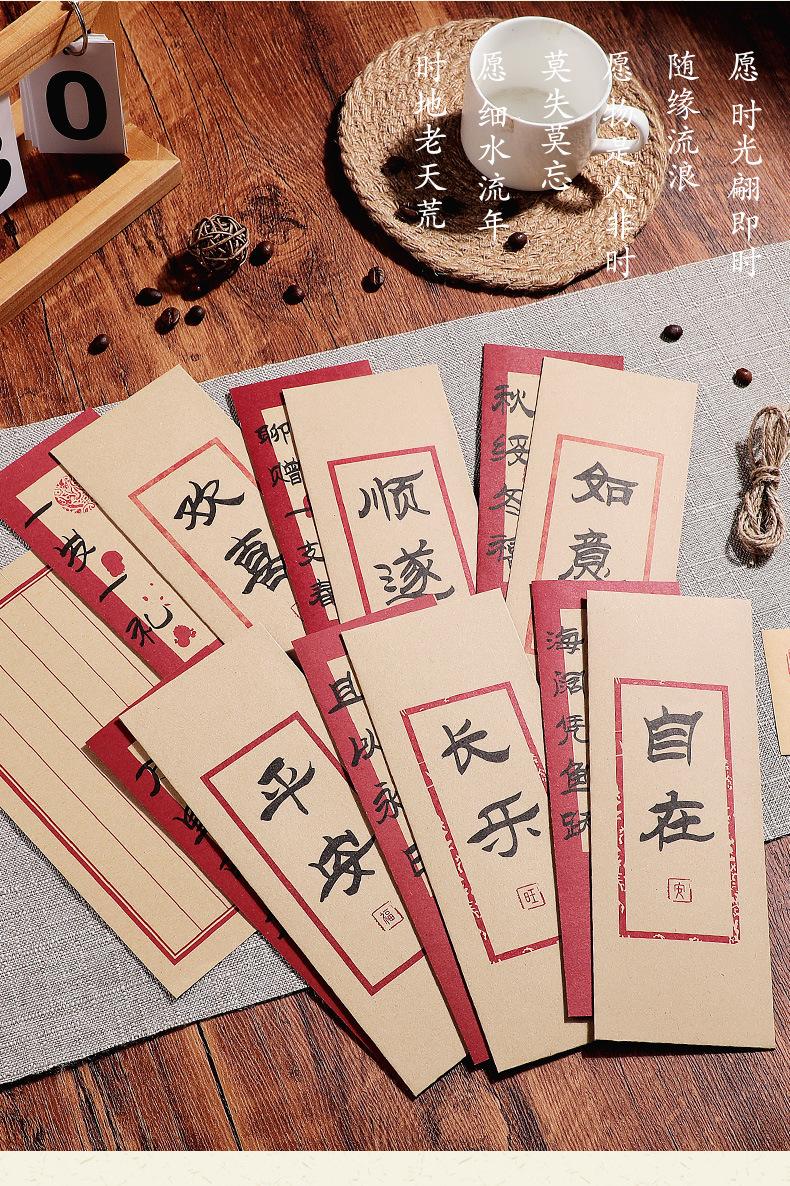 愿时光翩即时
随缘流浪
愿物是人非时
莫失莫忘
愿细水流年
时地老天荒
0
一岁一礼
欢喜
聊赠一支春
顺遂
秋绥冬禧
如意
平安
福
且以永日
长乐
旺
海阔凭鱼跃
自在
安